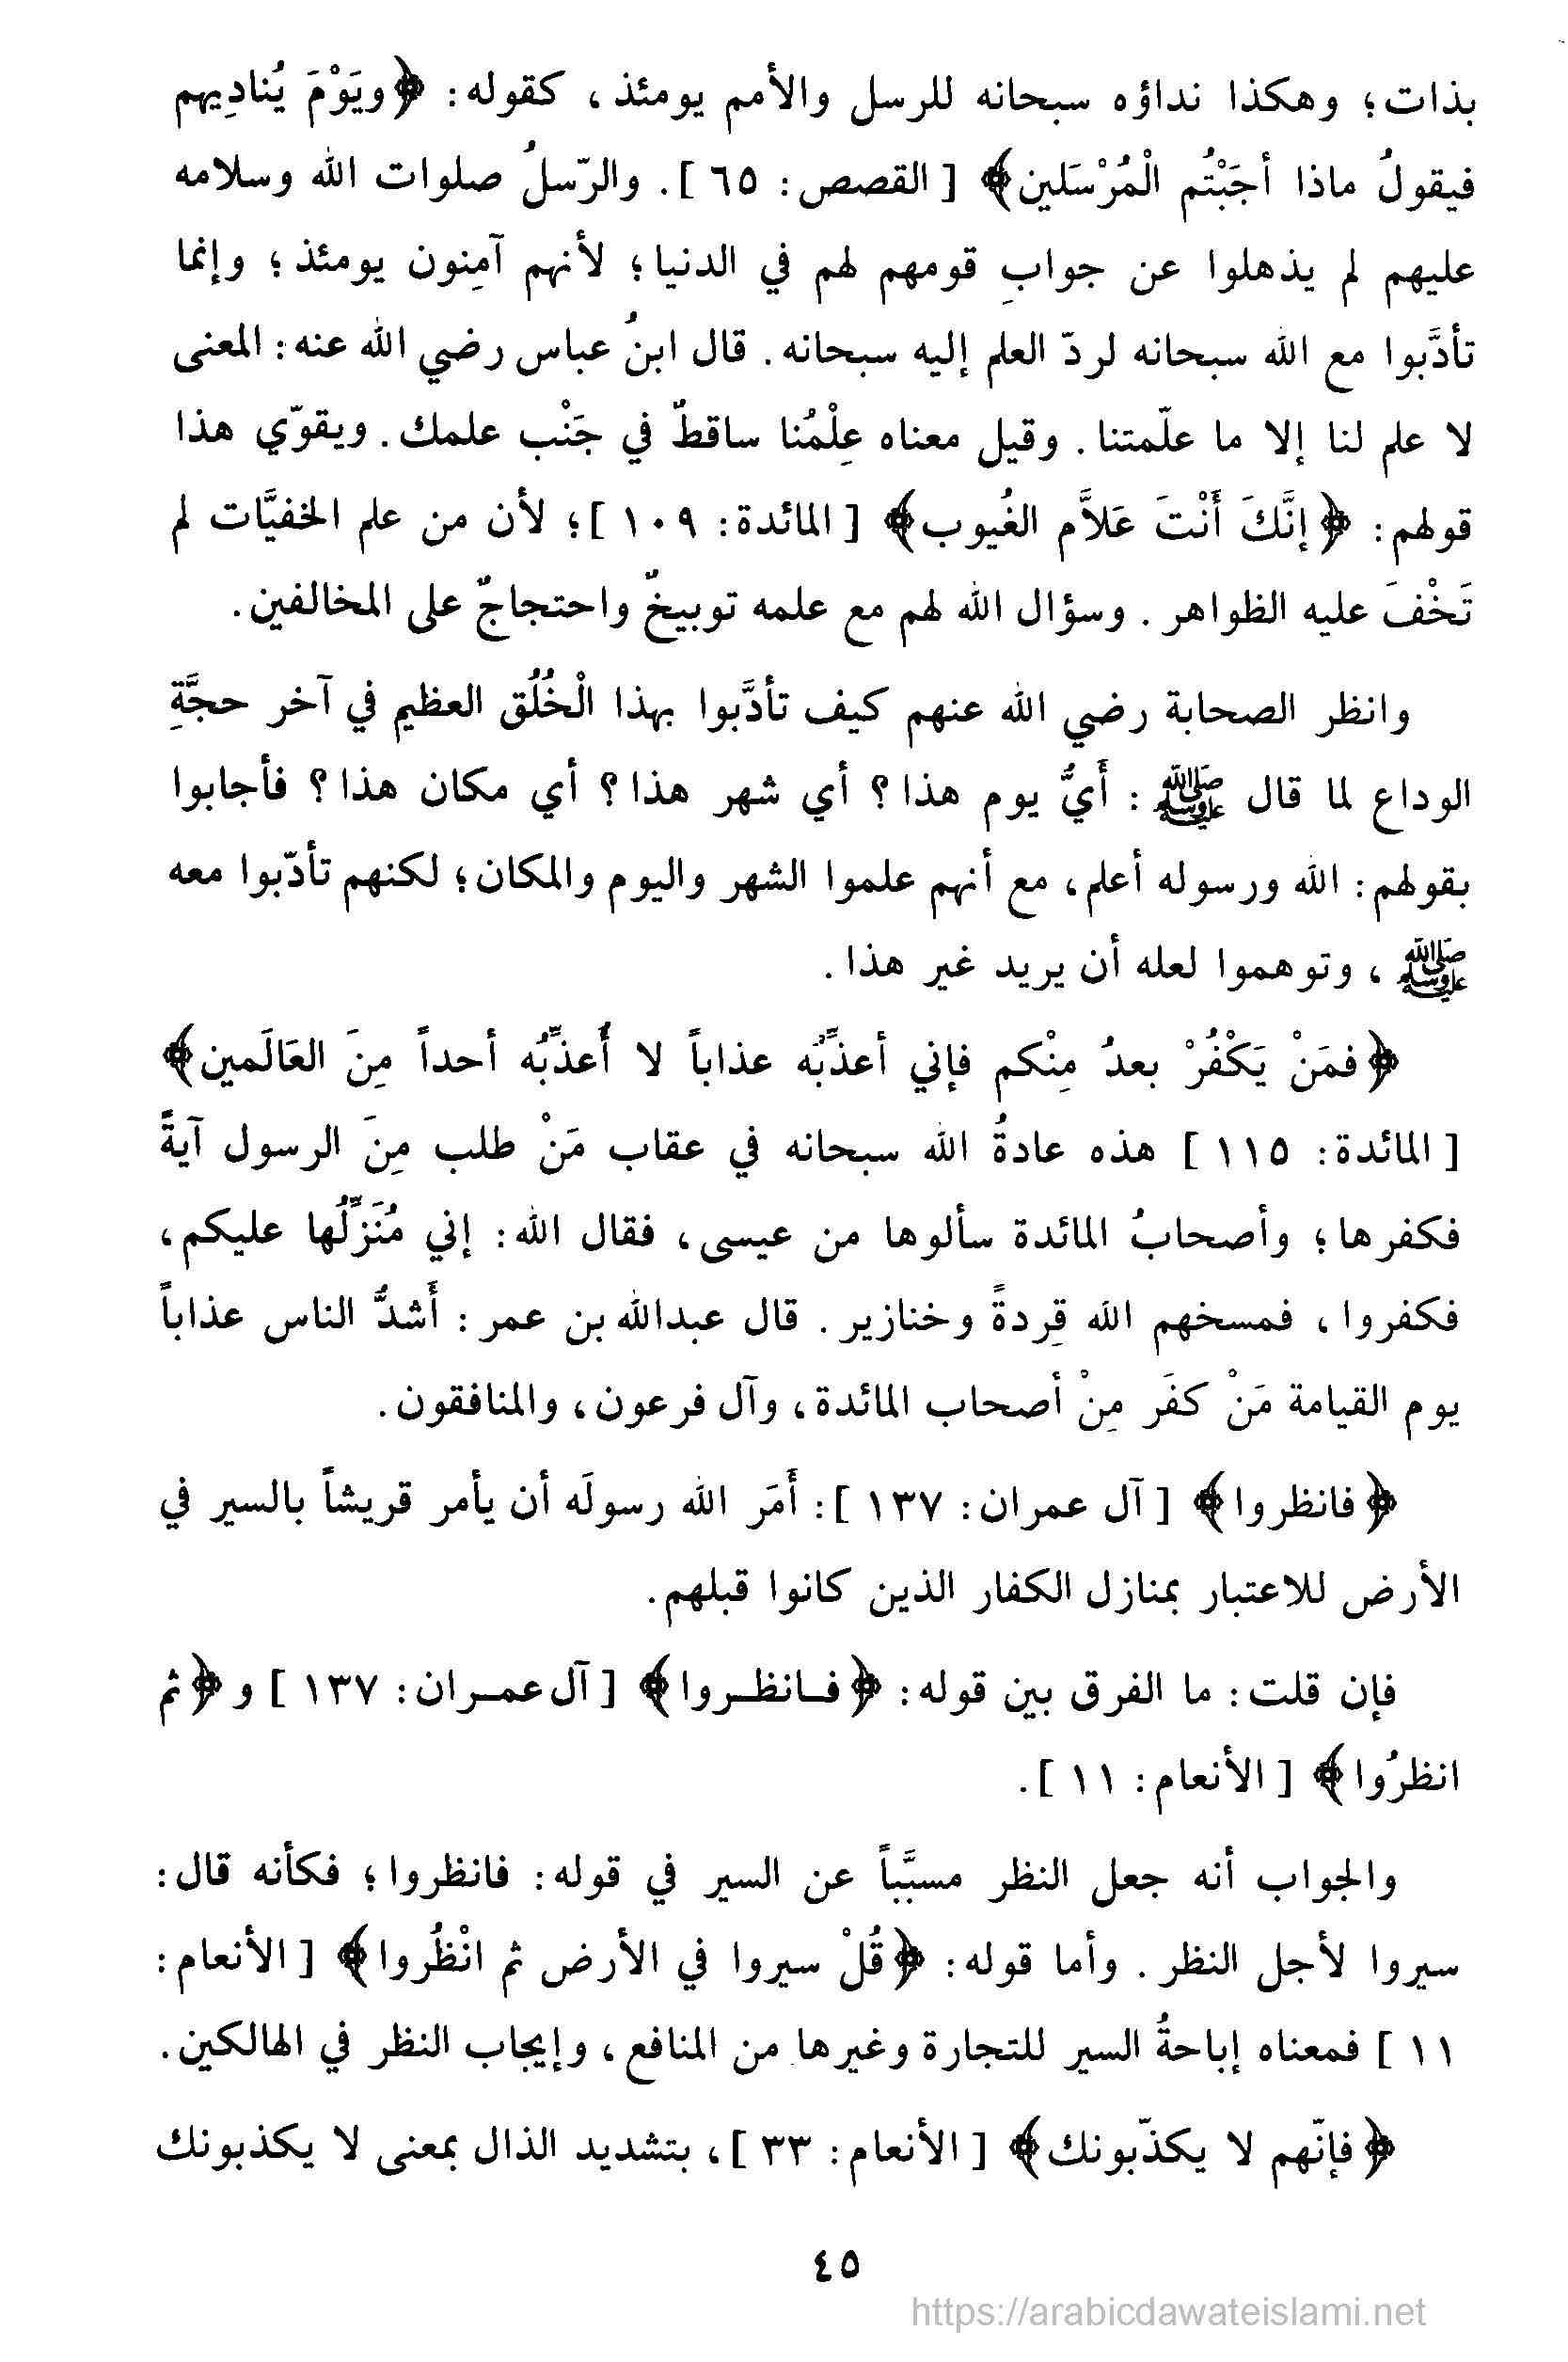 بذات؛ وهكذا نداؤه سبحانه للرسل والأمم يومئذ، كقوله: ﴿ويَوْمَ يُنادِيهم
فيقولُ ماذا أجَبْتُم الْمُرْسَلين﴾ [ القصص: ٦٥ ]. والرّسلُ صلوات الله وسلامه
عليهم لم يذهلوا عن جوابِ قومهم لهم في الدنيا؛ لأنهم آمِنون يومئذ؛ وإنما
تأدَّبوا مع الله سبحانه لردّ العلم إليه سبحانه. قال ابنُ عباس رضي الله عنه: المعنى
لا علم لنا إلا ما علّمتنا. وقيل معناه عِلْمُنا ساقطٌ في جَنْب علمك. ويقوّي هذا
قولهم: ﴿إنَّكَ أَنْتَ عَلاَّم الغُيوب﴾ [ المائدة: ١٠٩ ]؛ لأن من علم الخفيَّات لم
تَخْفَ عليه الظواهر. وسؤال الله لهم مع علمه توبيخٌ واحتجاجٌ على المخالفين.
وانظر الصحابة رضي الله عنهم كيف تأدَّبوا بهذا الْخُلُق العظيم في آخر حجَّةِ
الوداع لما قال ﷺ: أَيُّ يوم هذا؟ أي شهر هذا؟ أي مكان هذا؟ فأجابوا
بقولهم: الله ورسوله أعلم، مع أنهم علموا الشهر واليوم والمكان؛ لكنهم تأدّبوا معه
ﷺ، وتوهموا لعله أن يريد غير هذا.
﴿فمَنْ يَكْفُرْ بعدُ مِنْكم فإني أعذِّبُه عذاباً لا أُعذِّبُه أحداً مِنَ العَالَمين﴾
[ المائدة: ١١٥ ] هذه عادةُ الله سبحانه في عقاب مَنْ طلب مِنَ الرسول آيةً
فكفرها؛ وأصحابُ المائدة سألوها من عيسى، فقال الله: إني مُنَزِّلُها عليكم،
فكفروا، فمسخهم الله قِردةً وخنازير. قال عبدالله بن عمر: أَشدُّ الناس عذاباً
يوم القيامة مَنْ كفَر مِنْ أصحاب المائدة، وآل فرعون، والمنافقون.
﴿فانظروا﴾ [ آل عمران: ١٣٧ ]: أَمَر الله رسولَه أن يأمر قريشاً بالسير في
الأرض للاعتبار بمنازل الكفار الذين كانوا قبلهم.
فإن قلت: ما الفرق بين قوله: ﴿فـانظـروا﴾ [ آل عمـران: ١٣٧ ] و﴿ثم
انظرُوا﴾ [ الأنعام: ١١ ].
والجواب أنه جعل النظر مسبَّباً عن السير في قوله: فانظروا؛ فكأنه قال:
سيروا لأجل النظر. وأما قوله: ﴿قُلْ سيروا في الأرض ثم انْظُروا﴾ [ الأنعام:
١١ ] فمعناه إباحةُ السير للتجارة وغيرها من المنافع، وإيجاب النظر في الهالكين.
﴿فإنّهم لا يكذّبونك﴾ [ الأنعام: ٣٣ ]، بتشديد الذال بمعنى لا يكذبونك
٤٥
https://arabicdawateislami.net